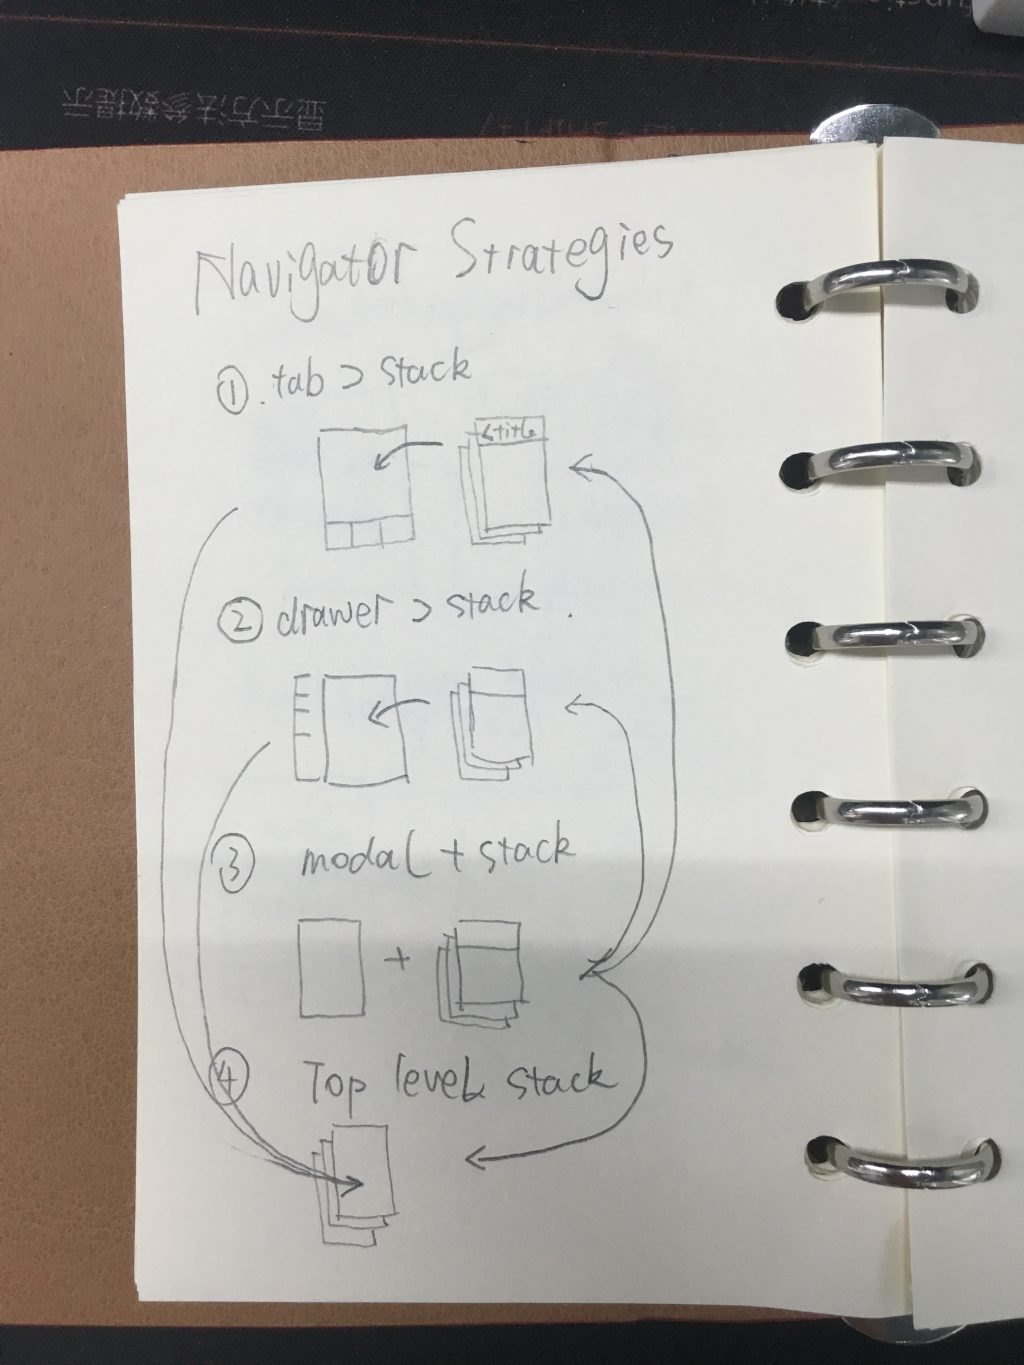 Navigator Strategies
① . tab > stack
< title
② drawer > stack .
③ modal + stack
+
④ Top level stack
显示方法参数提示